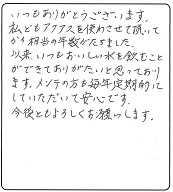 いつもありがとうございます。
私どもアクアスを使わさせて頂いて
から相当の年数がたちました。
以来いつもおいしい水を飲むこと
ができてありがたいと思っており
ます。メンテの方も毎年定期的に
していただいて安心です。
今後ともよろしくお願いします。